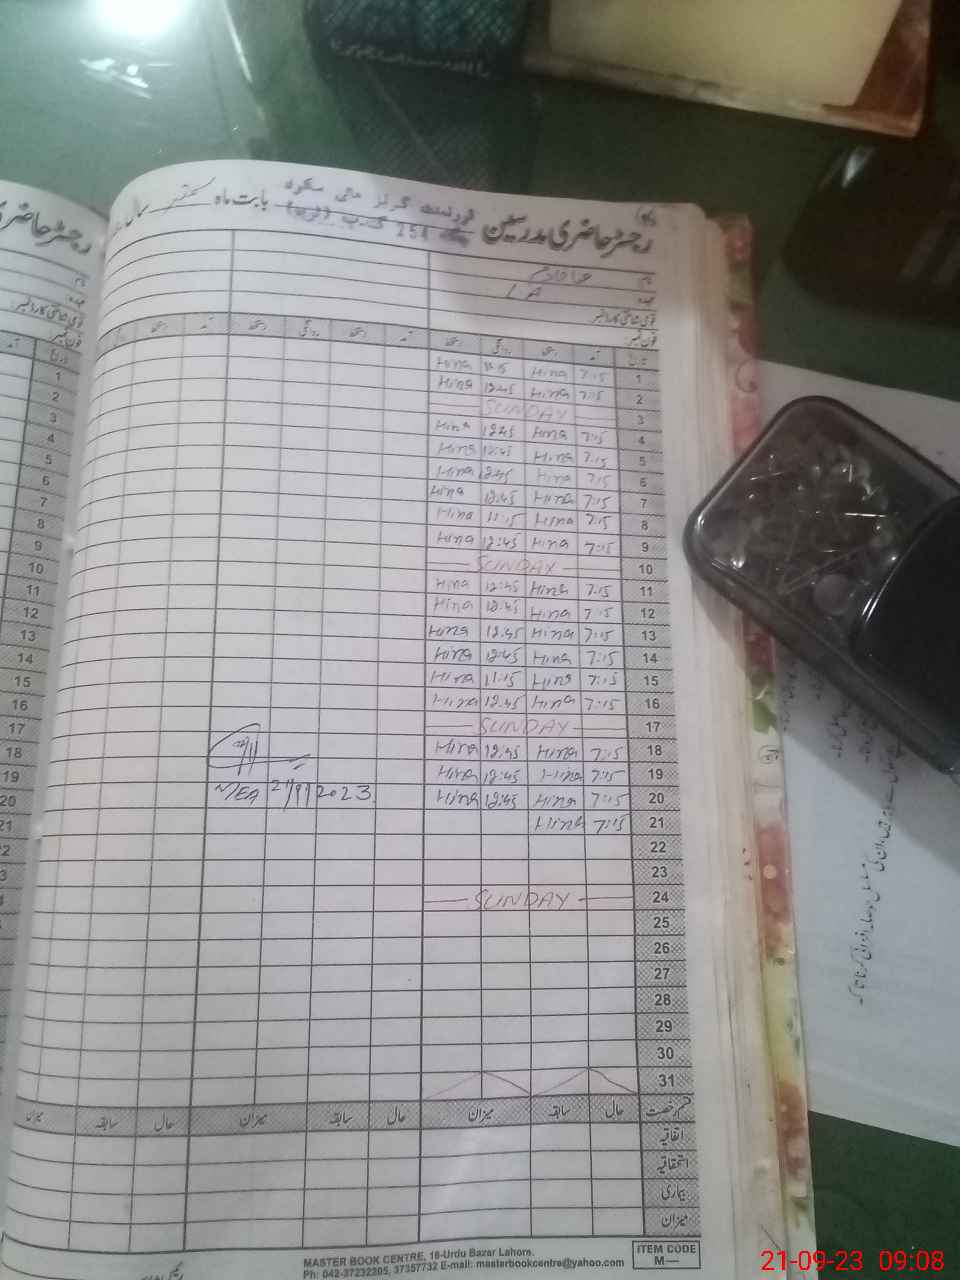 رجسٹر حاضری مدرسین گورنمنٹ گرلز ہائی سکول بابت ماہ ستمبر سال
254 گ ب
نام
عہدہ
قومی شناختی کارڈ نمبر:
فون نمبر:
تاریخ آمد دستخط روانگی دستخط آمد دستخط روانگی دستخط آمد
1 7:15 Hina Hina
2 7:15 Hina 12:45 Hina
3 SUNDAY
4 7:15 Hina 12:45 Hina
5 7:15 Hina 12:45 Hina
6 7:15 Hina 12:45 Hina
7 7:15 Hina 12:45 Hina
8 7:15 Hina 11:15 Hina
9 7:15 Hina 12:45 Hina
10 SUNDAY
11 7:15 Hina 12:45 Hina
12 7:15 Hina 12:45 Hina
13 7:15 Hina 12:45 Hina
14 7:15 Hina 12:45 Hina
15 7:15 Hina 11:15 Hina
16 7:15 Hina 12:45 Hina
17 SUNDAY
18 7:15 Hina 12:45 Hina
19 7:15 Hina 12:45 Hina
20 7:15 Hina 12:45 Hina
MEA 21/9/2023
21 7:15 Hina
22
23
24 SUNDAY
25
26
27
28
29
30
31
قسم رخصت حال سابقہ میزان حال سابقہ میزان حال سابقہ میزان
اتفاقیہ
استحقاقیہ
بیماری
میزان
MASTER BOOK CENTRE, 16-Urdu Bazar Lahore.
Ph: 042-37232205, 37357732 E-mail: masterbookcentre@yahoo.com
ITEM CODE
M—
21-09-23 09:08